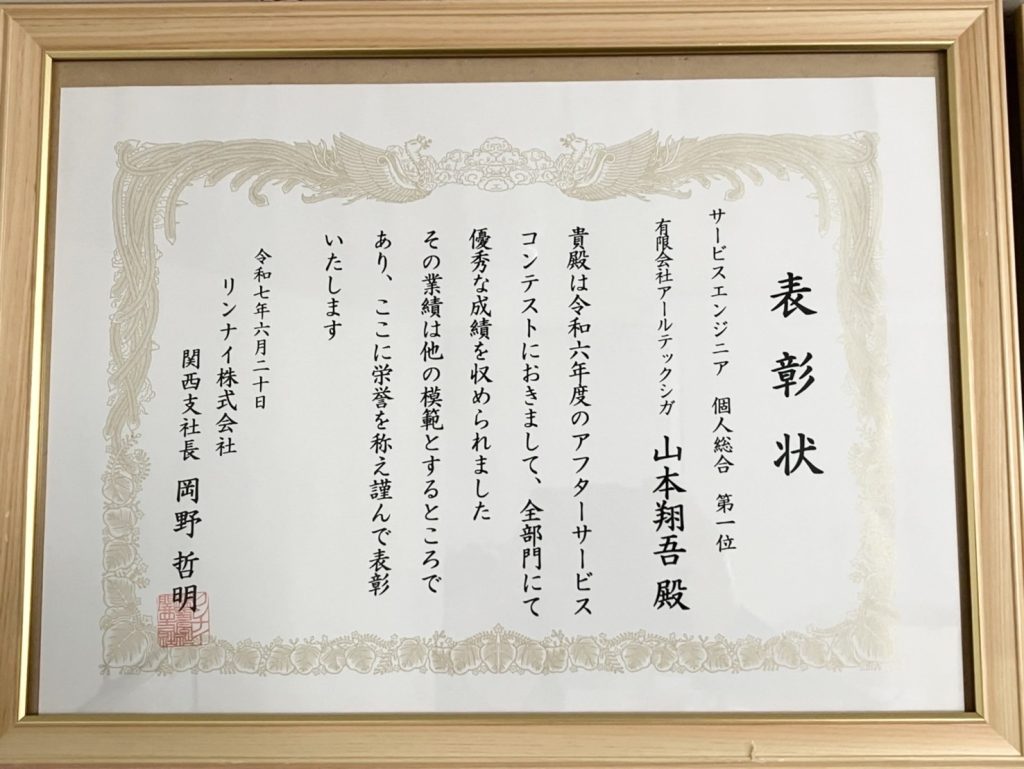 表彰状
サービスエンジニア 個人総合 第一位
有限会社アールテックシガ 山本翔吾 殿
貴殿は令和六年度のアフターサービス
コンテストにおきまして、全部門にて
優秀な成績を収められました
その業績は他の模範とするところで
あり、ここに栄誉を称え謹んで表彰
いたします
令和七年六月二十日
リンナイ株式会社
関西支社長 岡野 哲明